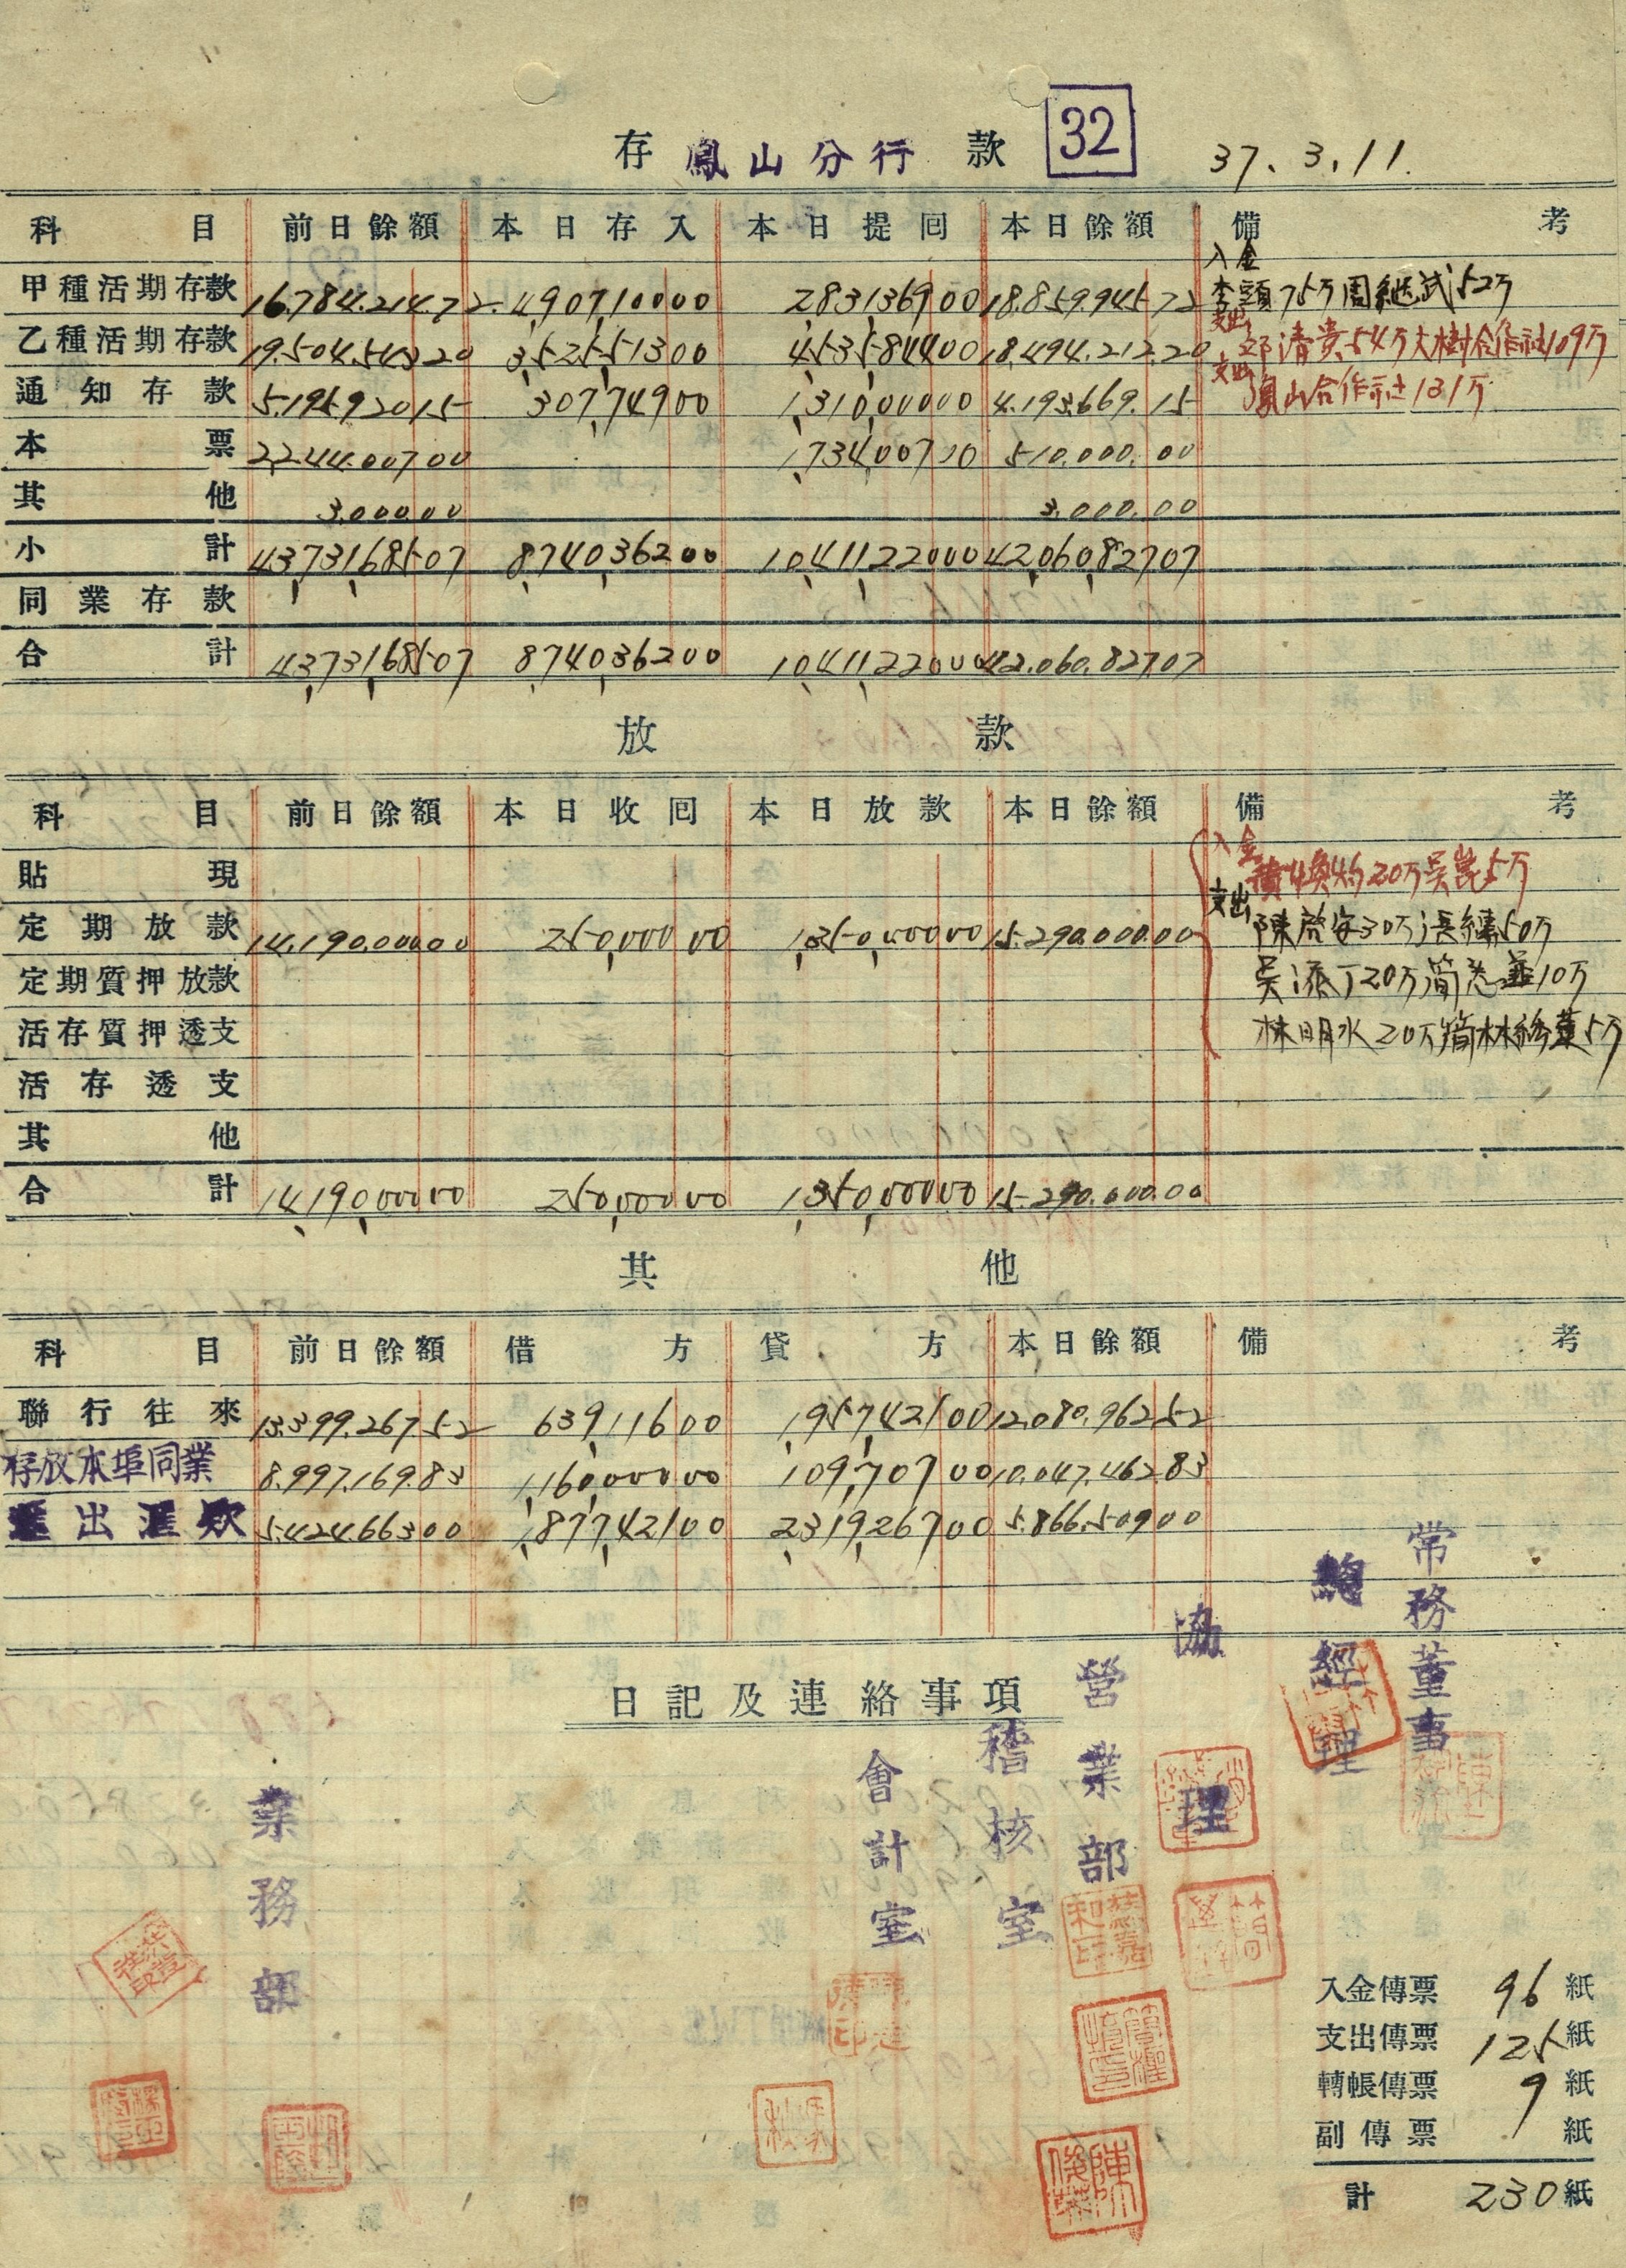 存 鳳山分行 款 32 37.3.11.
科目 前日餘額 本日存入 本日提囘 本日餘額 備考
入金
甲種活期存款 16,784,214.72 4,907,100.00 2,831,369.00 18,859,945.72 75万周継武52万
支出
乙種活期存款 19,504,543.20 3,525,513.00 4,535,844.00 18,494,212.20 清貴54万大樹合作社109万
支出
通知存款 5,195,920.15 307,749.00 1,310,000.00 4,193,669.15 鳳山合作社131万
本票 2,244,007.00 1,734,007.00 510,000.00
其他 3,000.00 3,000.00
小計 43,731,685.07 8,740,362.00 10,411,220.00 42,060,827.07
同業存款
合計 43,731,685.07 8,740,362.00 10,411,220.00 42,060,827.07
放款
科目 前日餘額 本日收囘 本日放款 本日餘額 備考
入金
貼現 20万吳崑5万
支出
定期放款 14,190,000.00 250,000.00 1,350,000.00 15,290,000.00 陳啓安30万 50万
定期質押放款 吳添丁20万簡 10万
活存質押透支 林明水20万簡林 5万
活存透支
其他
合計 14,190,000.00 250,000.00 1,350,000.00 15,290,000.00
其他
科目 前日餘額 借方 貸方 本日餘額 備考
聯行往來 13,399,267.52 639,116.00 1,957,421.00 12,080,962.52
存放本埠同業 8,997,169.83 1,160,000.00 109,707.00 10,047,462.83
匯出匯款 5,424,663.00 1,877,421.00 2,319,267.00 5,866,509.00
日記及連絡事項
常務董事
總經理
協理
營業部
稽核室
會計室
業務部
陳俊
入金傳票 96 紙
支出傳票 125 紙
轉帳傳票 9 紙
副傳票 紙
計 230 紙